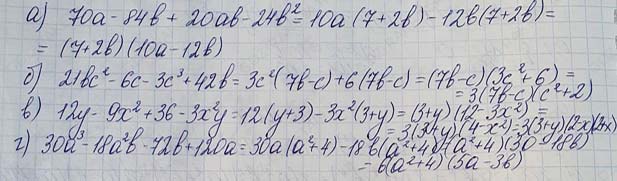 а) 70a - 84b + 20ab - 24b² = 10a (7+2b) - 12b (7+2b) =
= (7+2b) (10a - 12b)
б) 21bc² - 6c - 3c³ + 42b = 3c² (7b - c) + 6 (7b - c) = (7b - c) (3c² + 6) =
= 3 (7b - c) (c² + 2)
в) 12y - 9x² + 36 - 3x²y = 12 (y+3) - 3x² (3+y) = (3+y) (12 - 3x²) =
= 3 (3+y) (4 - x²) = 3 (3+y) (2-x) (2+x)
г) 30a³ - 18a²b - 72b + 120a = 30a (a²+4) - 18b (a²+4) = (a²+4) (30 - 18b)
= 6 (a²+4) (5a - 3b)